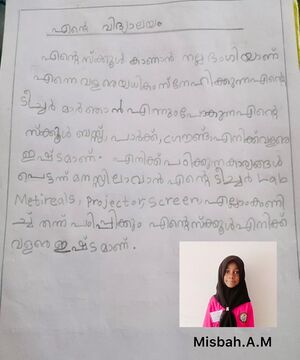 എന്റെ വിദ്യാലയം
എന്റെ സ്ക്കൂൾ കാണാൻ നല്ല ഭംഗിയാണ്
എന്നെ വളരെയധികം സ്നേഹിക്കുന്ന എന്റെ
ടീച്ചർമാർ ഞാൻ എന്നും പോകുന്ന എന്റെ
സ്ക്കൂൾ ബസ്സ്, പാർക്ക്, ഗ്രൗണ്ട് എനിക്ക് വളരെ
ഇഷ്ടമാണ്. എനിക്ക് പഠിക്കുന്ന കാര്യങ്ങൾ
പെട്ടന്ന് മനസ്സിലാവാൻ എന്റെ ടീച്ചർ Lab
Metireals, Projector, screen എല്ലാം കാണി
ച്ച് തന്ന് പഠിപ്പിക്കും എന്റെ സ്ക്കൂൾ എനിക്ക്
വളരെ ഇഷ്ടമാണ്.
Misbah.A.M